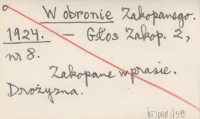 W obronie Zakopanego.
1924. — Głos Zakop. 2,
nr 8.
Zakopane w prasie.
Drożyzna.